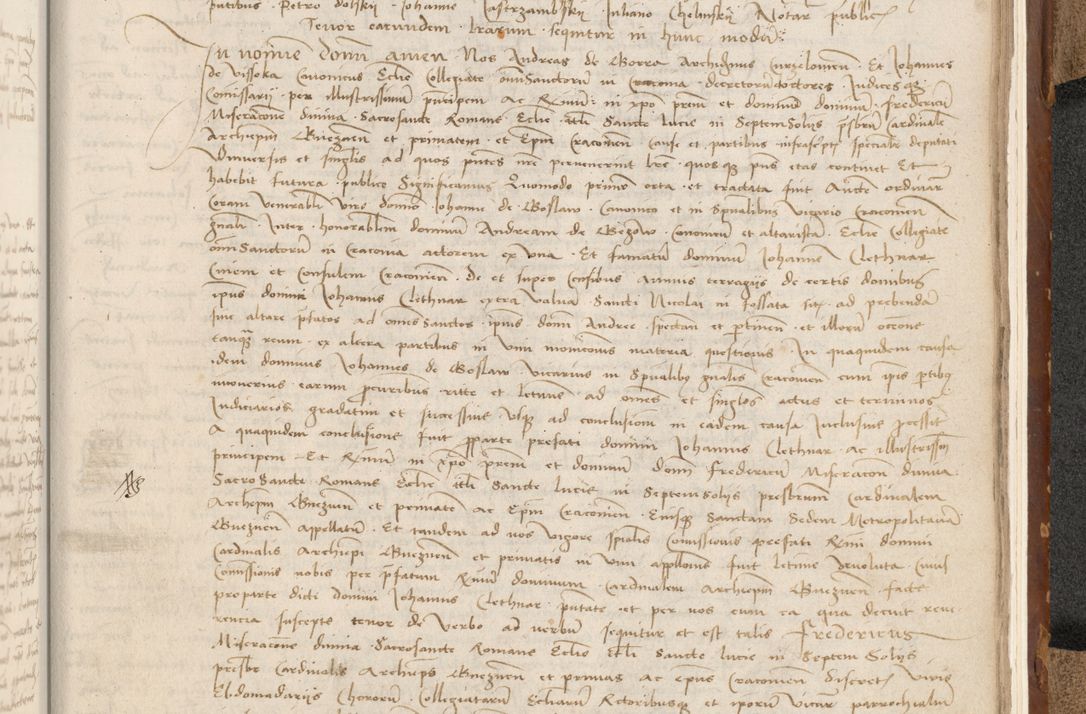 putibus Petro Dolskij Iohanne Iastrzambskij Iuliano Chelmskij Notar public
Tenor earundem lrarum sequitur in hunc modu
In nomine Domi amen Nos Andreas de Gorra Archidnus Curzelomen Et Iohannes
de Vissoka Canonicus Eclie Collegiate omiSanctorum in Cracovia decretorum doctores Iudices
Comissarij per illustrissimum principem Ac Rimum in xpo prem et dominum dominum fredericum
Miseracone divina Sacrosancte Romane Eclie titli Sancte lucie in Septem Solijs prsbrum Cardinale
Archiepm Gneznen et primatem et Epm Cracovien cause et partibus infrascriptis specialr deputati
Vniversis et singlis ad quos pntes nre pervenerint lre quosque pns etas continet Et
habebit futura publice Significamus Quomodo primo orta et tractata fuit Aucte ordinar
Coram venerabli viro domno Iohanne de Boslaw Canonico et in Spualibus vicario Cracovien
gnali Inter honorablem dominum Andream de Bezowo Canonicum et altarista Eclie Collegiate
omniSanctorum in Cracovia actorem ex vna Et famatum dominum Iohanne Clethnar
Civiem et Consulem Cracovien de et super censibus Annuis terragijs de certis domibus
ipius domini Iohannis Clethnar extra valvam Sancti Nicolai in fossata sitis ad prebendam
sive altare pfatos ad omes Sanctos ipius domi Andree spectan et ptinen et illorum occone
tanquam reum ex altera partibus in vim monicomis materia questionis In quaquidem causa
idem dominus Iohannes de Boslaw vicarius in Spualibus gnalis Cracovien cum ipis ptibus
earum pcuribus ritte et letime ad omes et singlos actus et terminos
Iudiciarios gradatim et successive vsque ad conclusionem in eadem causa Inclusive pcessit
A quaquidem conclusione fuit pparte prefati domini Iohannis Clethnar ac illustrissim
principem Et Rimum in xpo prem et dominum domi fredericum Miseracon divina
SacroSancte Romane Eclie titli Sancte lucie in Septemsolijs presbrum Cardinalem
Archiepm Gneznen et primate ac Epm Cracovien Eiusque Sanctam Sedem Metropolitana
Gneznen Appellatum Et tandem ad nos vigore spialis Comissionis prefati Rimi domini
Cardinalis Archiepi Gneznen et primatis in vim applloms fuit letime devoluta Cuius
Comissionis nobis per pfatum Rimum dominum Cardinalem Archiepm Gneznen facte
proparte dicti domini Iohannis Clethnar pntate et per nos cum ea qua decuit reve
rencia suscepte tenor de verbo ad verbum sequitur et est talis Fredericus
Miseracone divina Sacrosancte Romane Eclie titli Sancte lucie in Septem Solijs
presbr Cardinalis Archieps Gneznen et primas ac Epus Cracovien Discretis viris
Ebdomadarijs Chororum Collegiatarum Ecliarum Rectoribusque et iporum vicar parrochialium